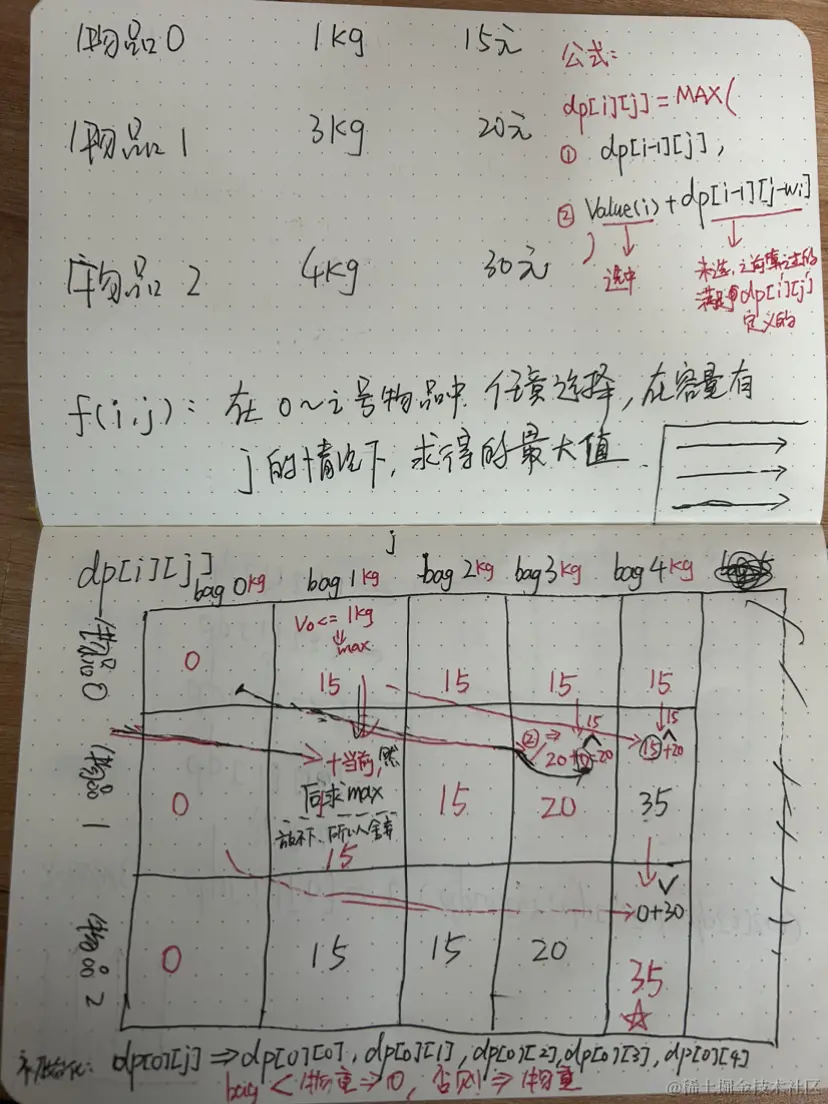 物品0 1kg 15元
物品1 3kg 20元
物品2 4kg 30元
公式:
dp[i][j] = MAX(
① dp[i-1][j],
② Value(i) + dp[i-1][j-wi]
)
选中
未选,之前
满足 dp[i][j]
定义的
f(i,j): 在0~i号物品中 任意选择,在容量有
j的情况下,求得的最大值
j
dp[i][j]
bag 0kg bag 1kg bag 2kg bag 3kg bag 4kg
物品0
V0 <= 1kg
max
0 15 15 15 15
15 15
物品1
+当前,然
后求max
② 20+0=20
15+20
0 15 20 35
放不下,所以
15
物品2
0+30
0 15 15 20 35
初始化: dp[0][j] ⇒ dp[0][0], dp[0][1], dp[0][2], dp[0][3], dp[0][4]
bag < 物重 ⇒ 0, 否则 ⇒ 物重
@稀土掘金技术社区